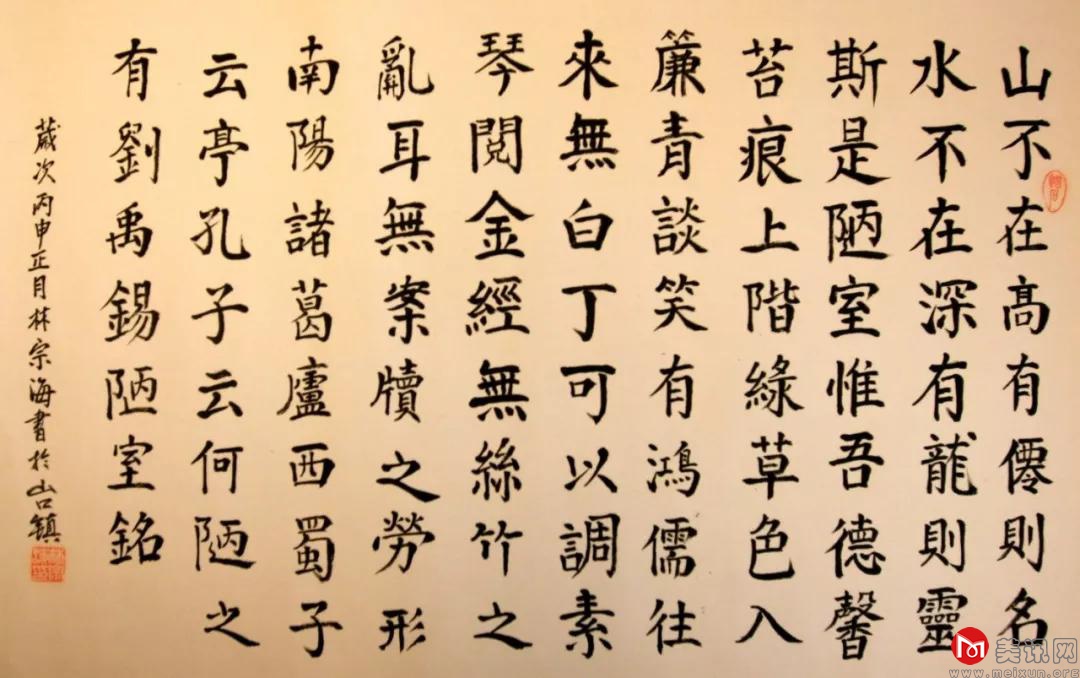 山不在高有僊則名
水不在深有龍則靈
斯是陋室惟吾德馨
苔痕上階綠草色入
簾青談笑有鴻儒往
來無白丁可以調素
琴閱金經無絲竹之
亂耳無案牘之勞形
南陽諸葛廬西蜀子
云亭孔子云何陋之
有劉禹錫陋室銘
歲次丙申正月林宗海書於山口鎮
美讯网
www.meixun.org